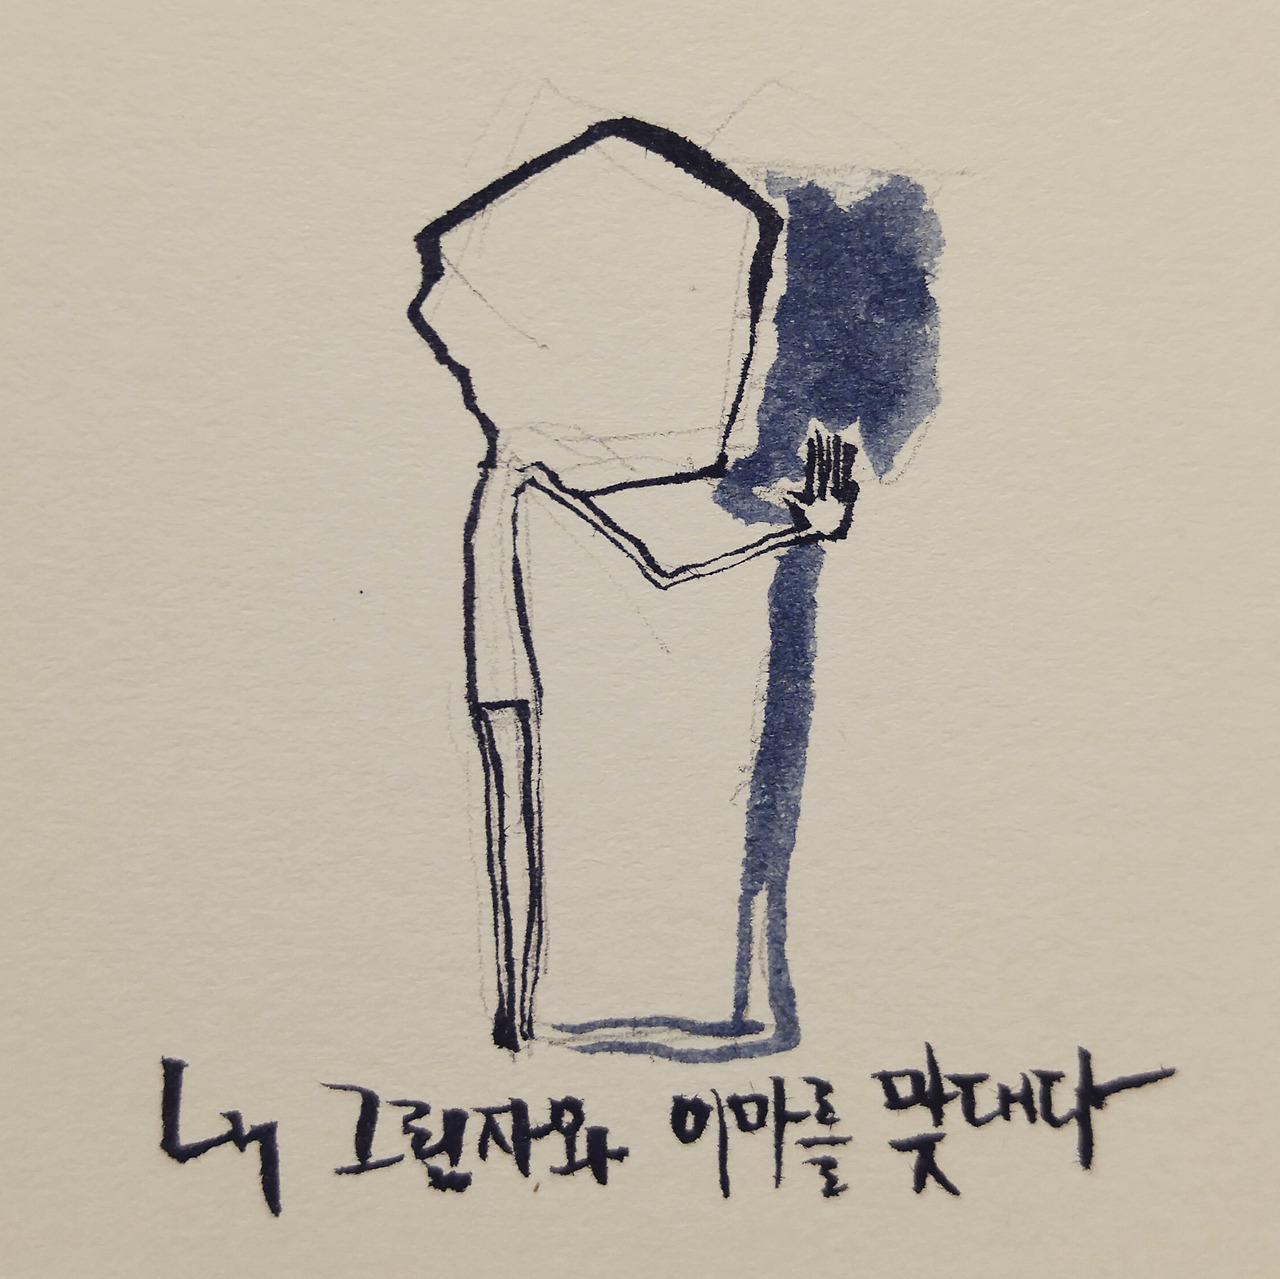 내 그림자와 이마를 맞대다